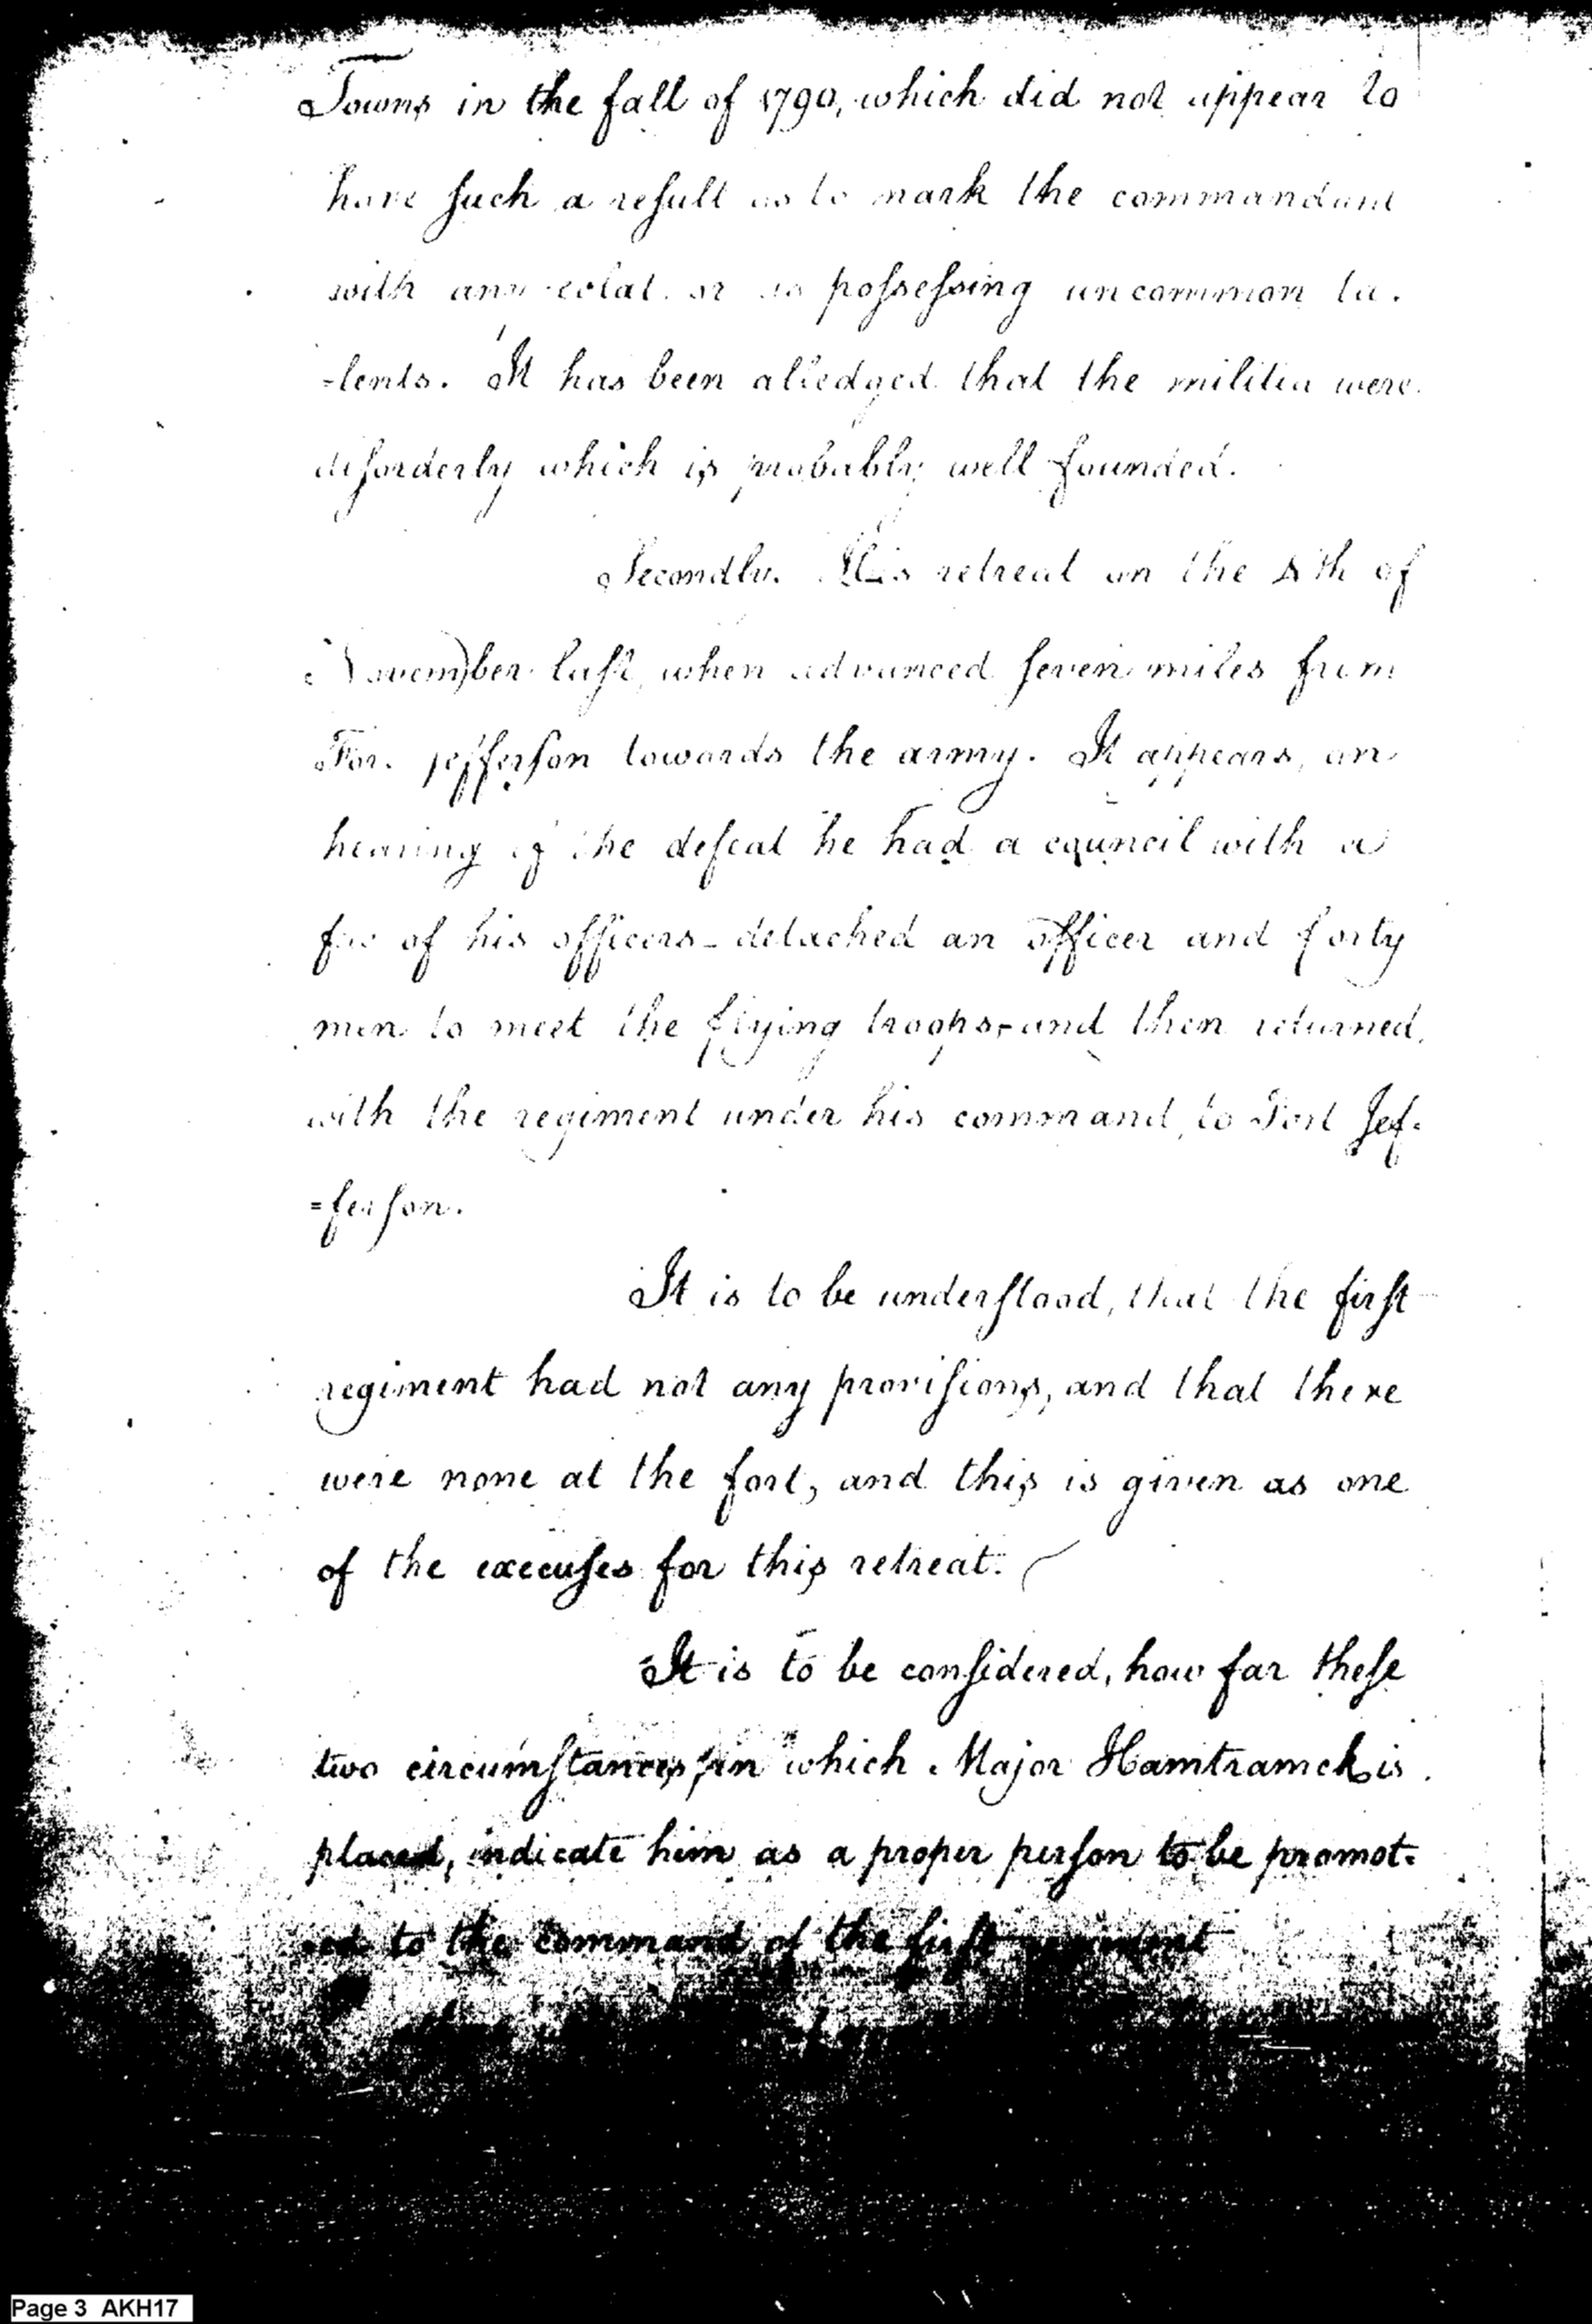 Towns in the fall of 1790, which did not appear to
have such a result as to mark the commandant
with any eclat. or as possessing uncommon ta-
-lents. It has been alledged that the militia were
disorderly which is probably well founded.
Secondly. His retreat on the 4th of
November last, when advanced seven miles from
Fort Jefferson towards the army. It appears, on
hearing of the defeat he had a council with a
few of his officers - detached an officer and forty
men to meet the flying troops - and then returned,
with the regiment under his command, to Fort Jef-
=ferson.
It is to be understood, that the first
regiment had not any provisions, and that there
were none at the fort, and this is given as one
of the excuses for this retreat.
It is to be considered, how far these
two circumstances, in which Major Hamtramck is
placed, indicate him as a proper person to be promot=
=ed to the command of the first regiment
Page 3 AKH17